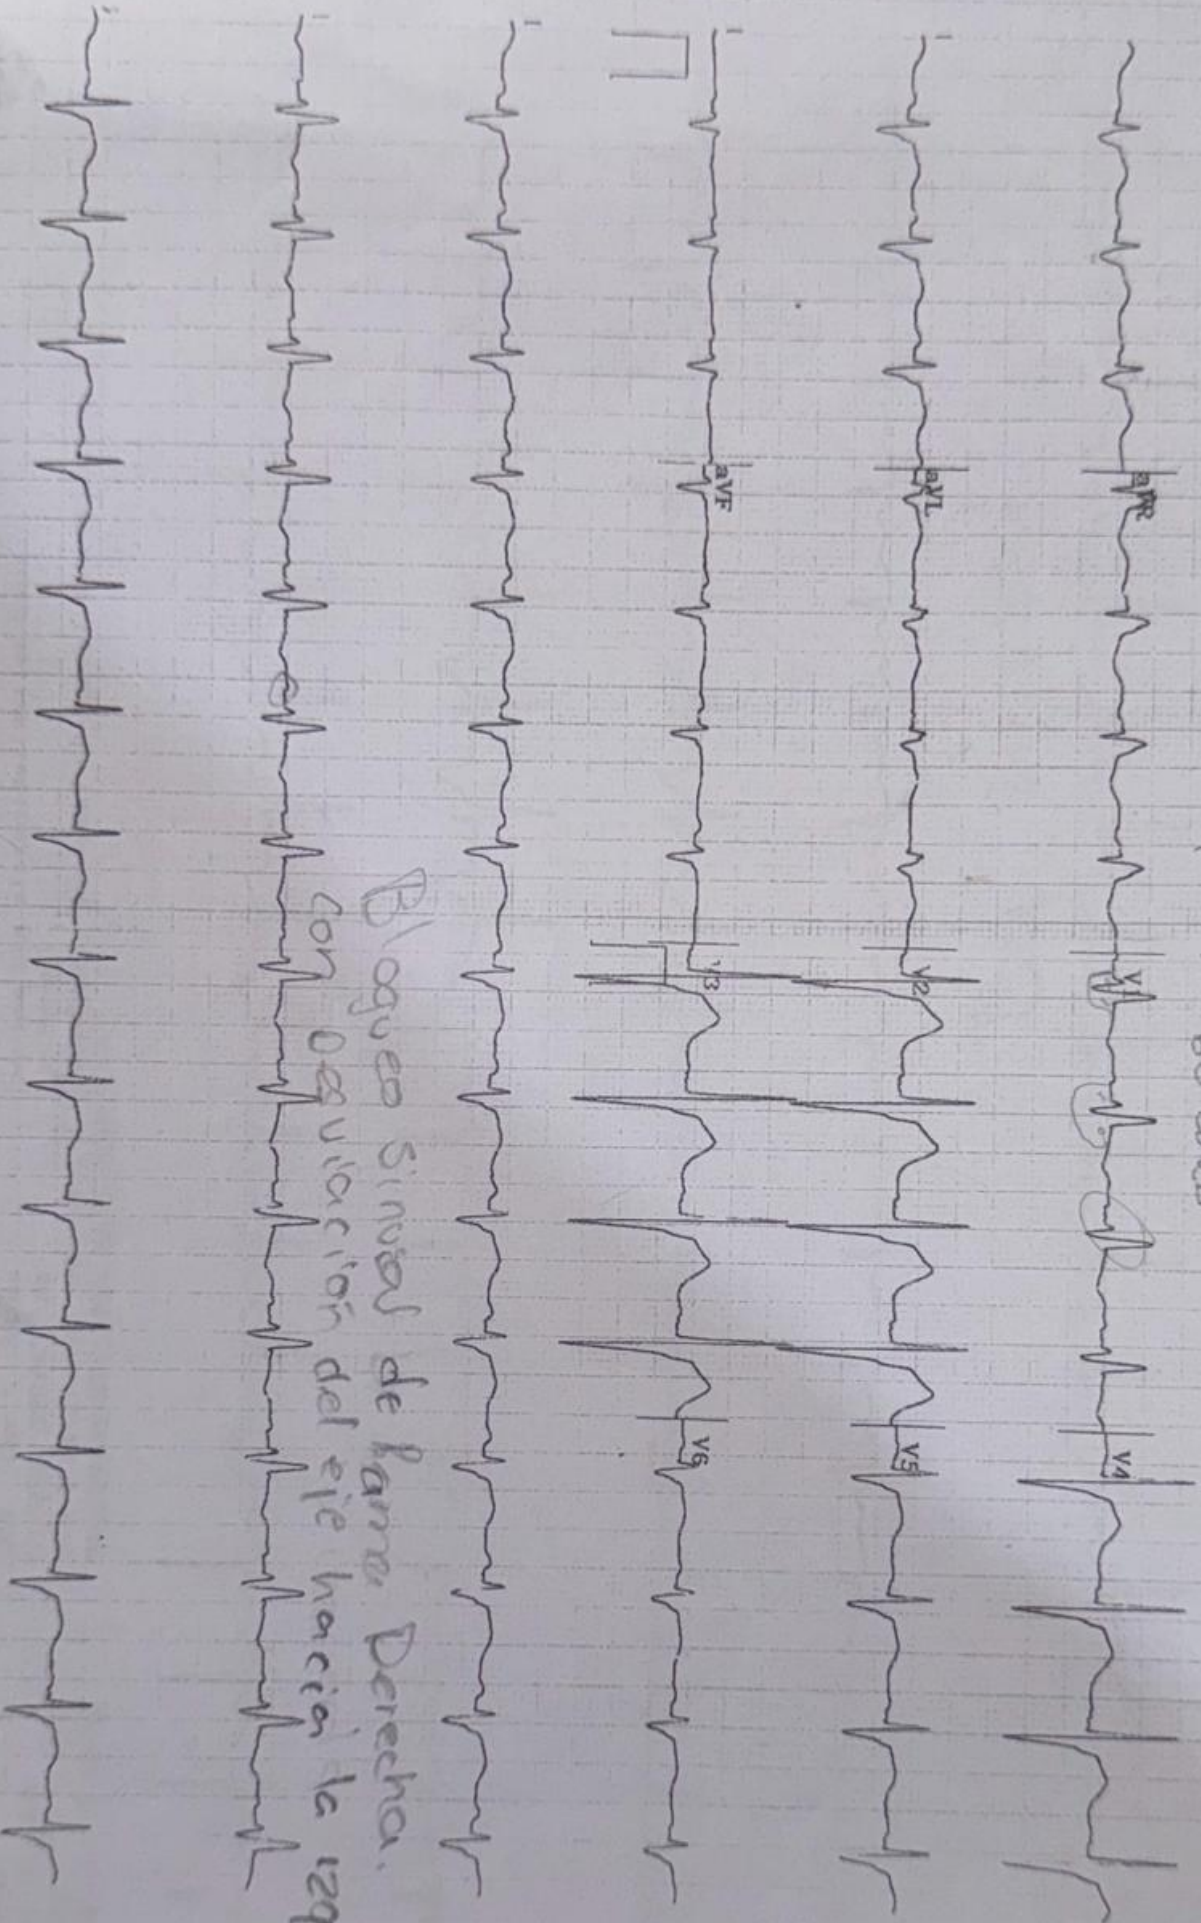 aVR
V1
V4
aVL
V2
V5
aVF
V3
V6
Bloqueo Sinusal de Rama Derecha.
Con Desviación del eje hacia la izq